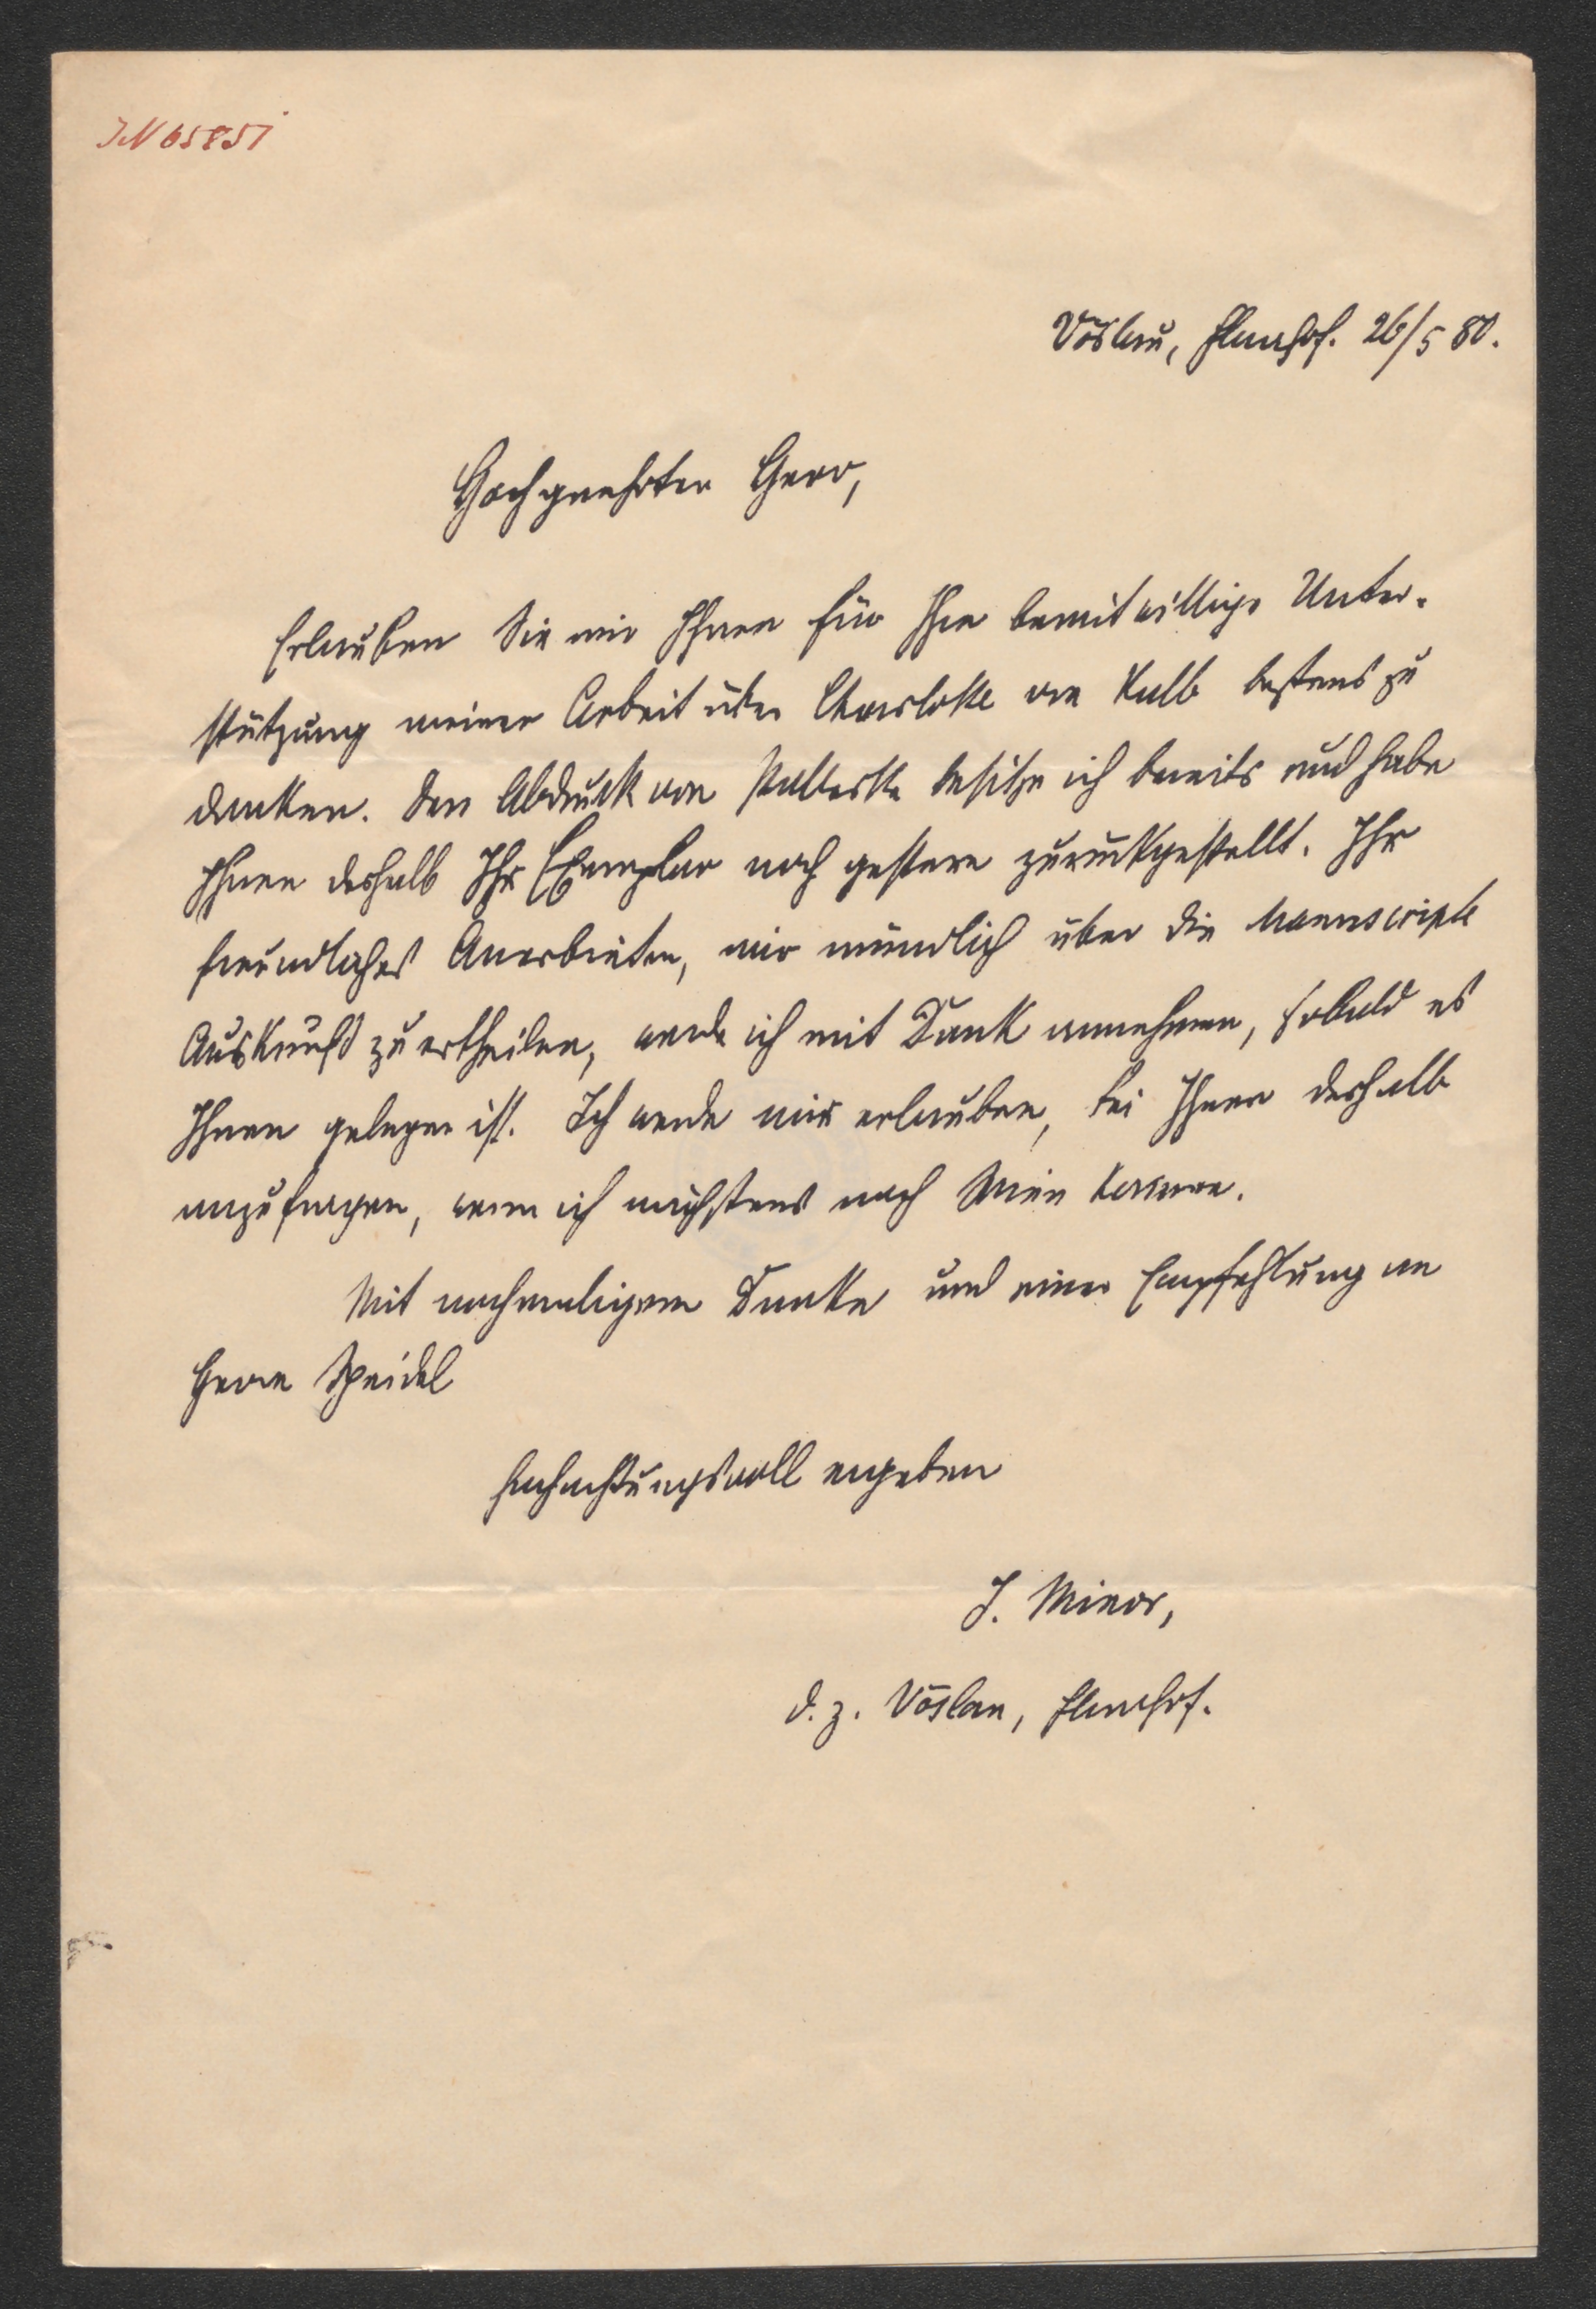 JN 65851
Vöslau, Elmhof. 26/5 80.
Hochgeehrter Herr,
Erlauben Sie mir Ihnen für Ihre bereitwillige Unter-
stützung meiner Arbeit über Charlotte von Kalb bestens zu
danken. Den Abdruck von Palleske besitze ich bereits und habe
Ihnen deshalb Ihr Exemplar noch gestern zurückgestellt. Ihr
freundliches Anerbieten, mir mündlich über die Manuscripte
Auskunft zu ertheilen, werde ich mit Dank annehmen, sobald es
Ihnen gelegen ist. Ich werde mir erlauben, bei Ihnen deshalb
anzufragen, wenn ich nächstens nach Wien komme.
Mit nochmaligem Danke und einer Empfehlung an
Herrn Speidel
hochachtungsvoll ergeben
J. Minor,
d. z. Vöslau, Elmhof.